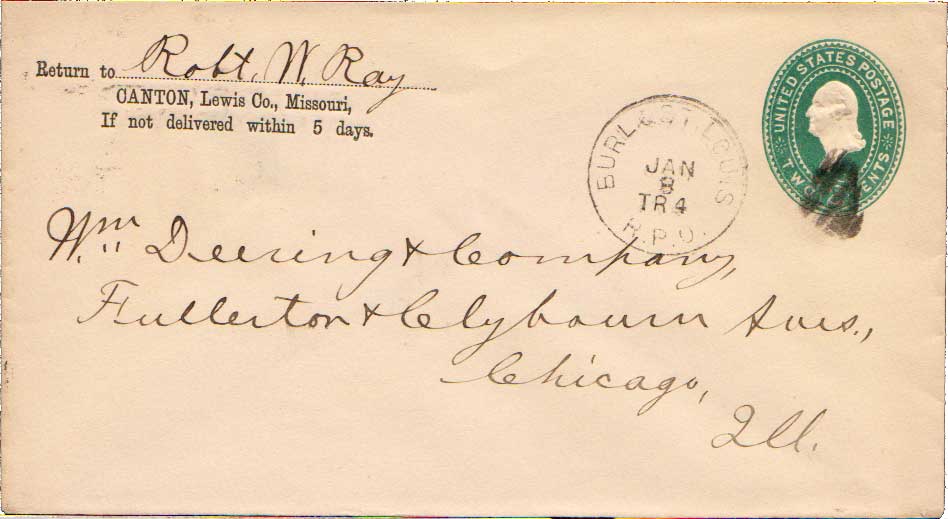 Return to Robt. W. Ray
CANTON, Lewis Co., Missouri,
If not delivered within 5 days.
UNITED STATES POSTAGE
TWO CENTS
BURL. & ST. LOUIS
JAN
8
TR 4
R.P.O.
Wm. Deering & Company,
Fullerton & Clybourn Aves.,
Chicago,
Ill.